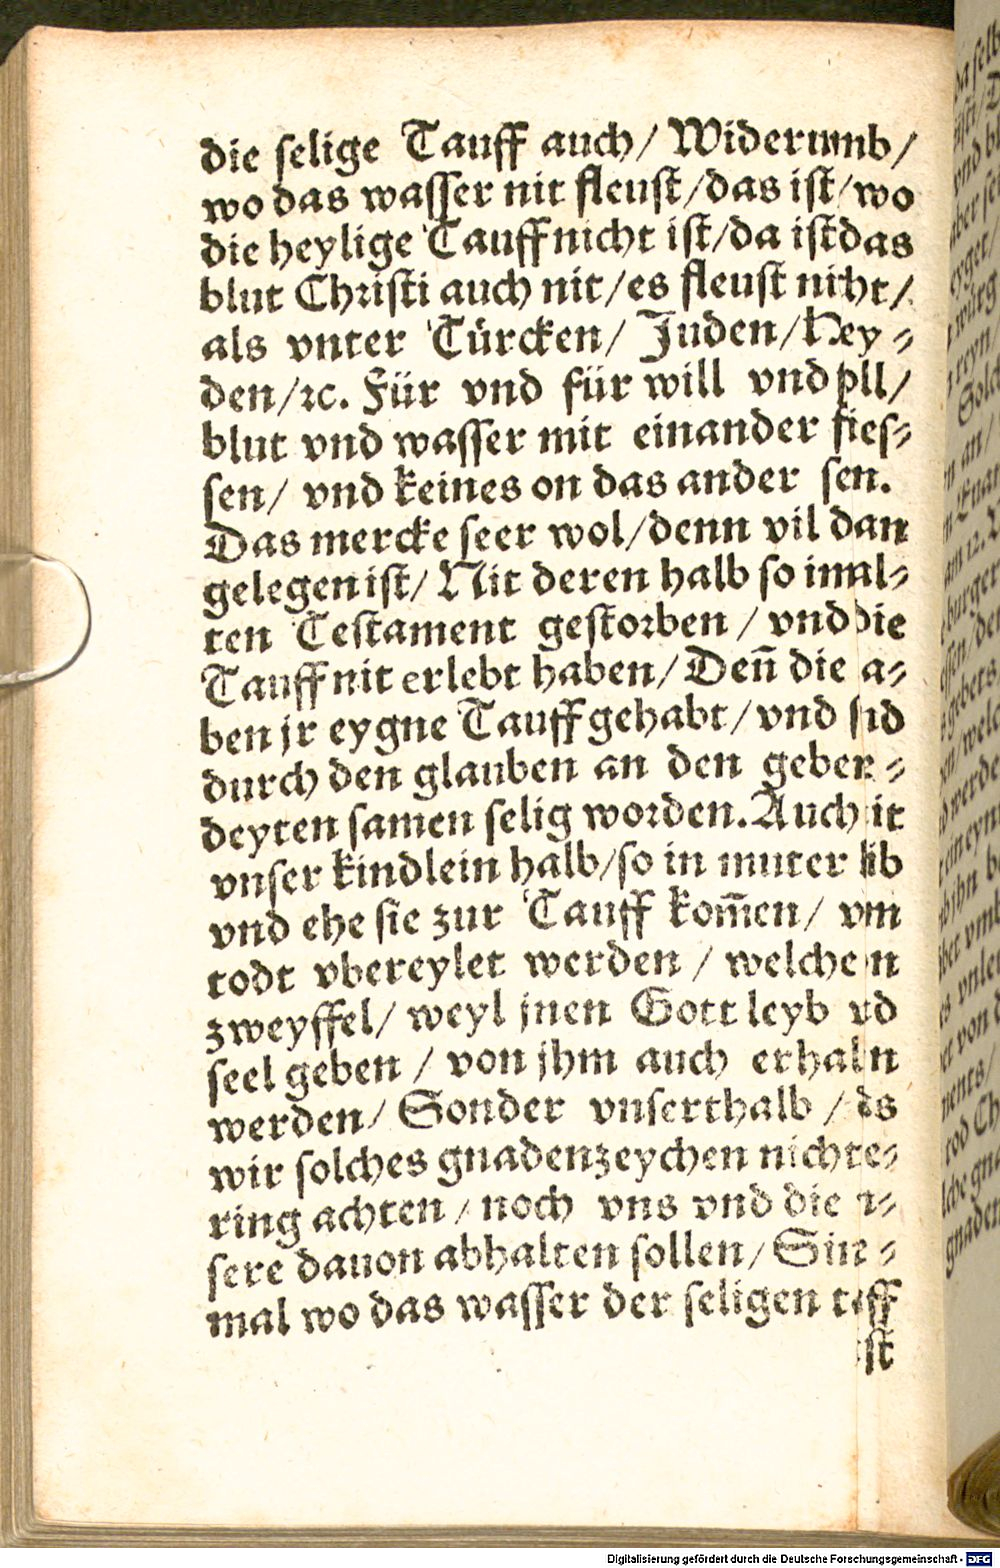 die selige Tauff auch/ Widerumb/
wo das wasser nit fleust/das ist/wo
die heylige Tauff nicht ist/da ist das
blut Christi auch nit/es fleust nicht/
als vnter Türcken/ Juden/ Hey-
den/ꝛc. Für vnd für will vnd soll/
blut vnd wasser mit einander flies-
sen/ vnd keines on das ander sein.
Das mercke seer wol/denn vil daran
gelegen ist/ Nit deren halb so im al-
ten Testament gestorben / vnd die
Tauff nit erlebt haben/ Deñ die ha-
ben jr eygne Tauff gehabt/ vnd sind
durch den glauben an den gebene-
deyten samen selig worden. Auch nit
vnser kindlein halb/so in muter leib
vnd ehe sie zur Tauff kom̄en/ vom
todt vbereylet werden / welche on
zweyffel/ weyl jnen Gott leyb vnd
seel geben / von jhm auch erhalten
werden/ Sonder vnserthalb / das
wir solches gnadenzeychen nicht ge-
ring achten / noch vns vnd die vn-
sere dauon abhalten sollen/ Sinte-
mal wo das wasser der seligen tauff
ist